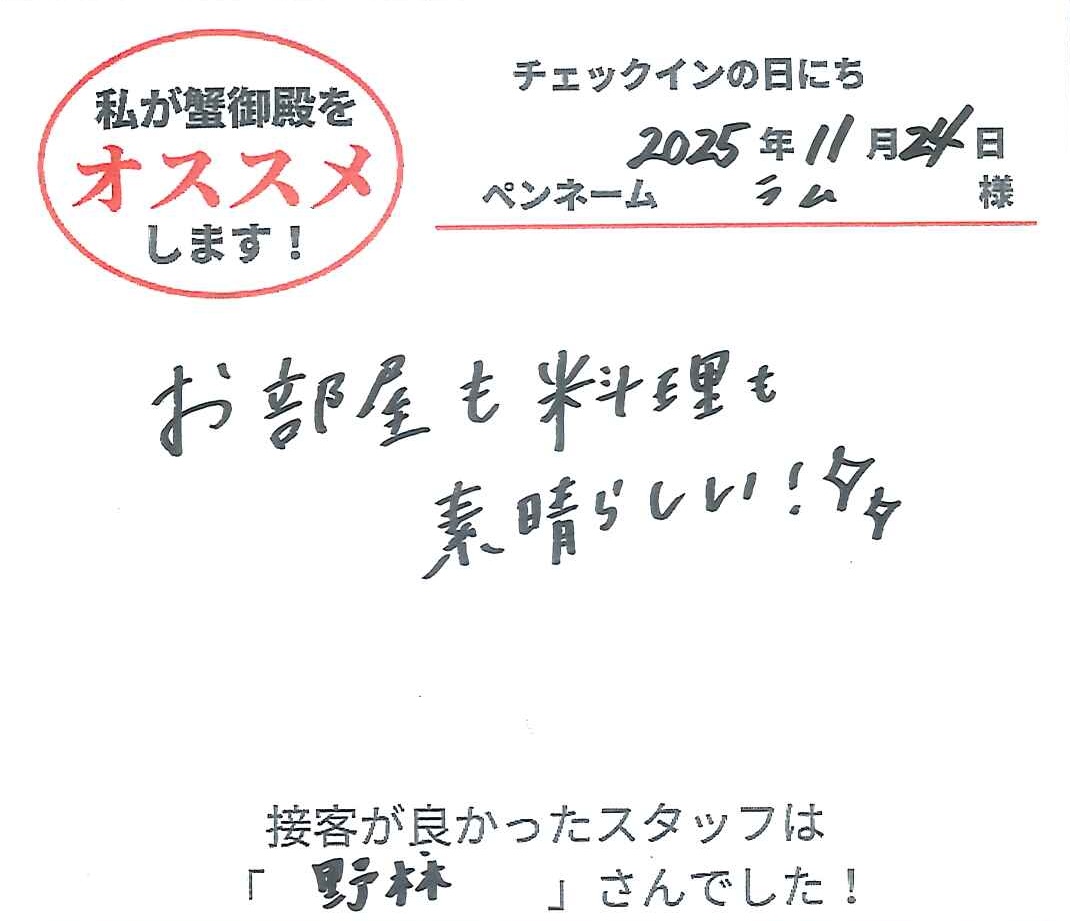 私が蟹御殿を
オススメ
します！
チェックインの日にち
2025年11月24日
ペンネーム ラム 様
お部屋も料理も
素晴らしい！
接客が良かったスタッフは
「 野林 」さんでした！